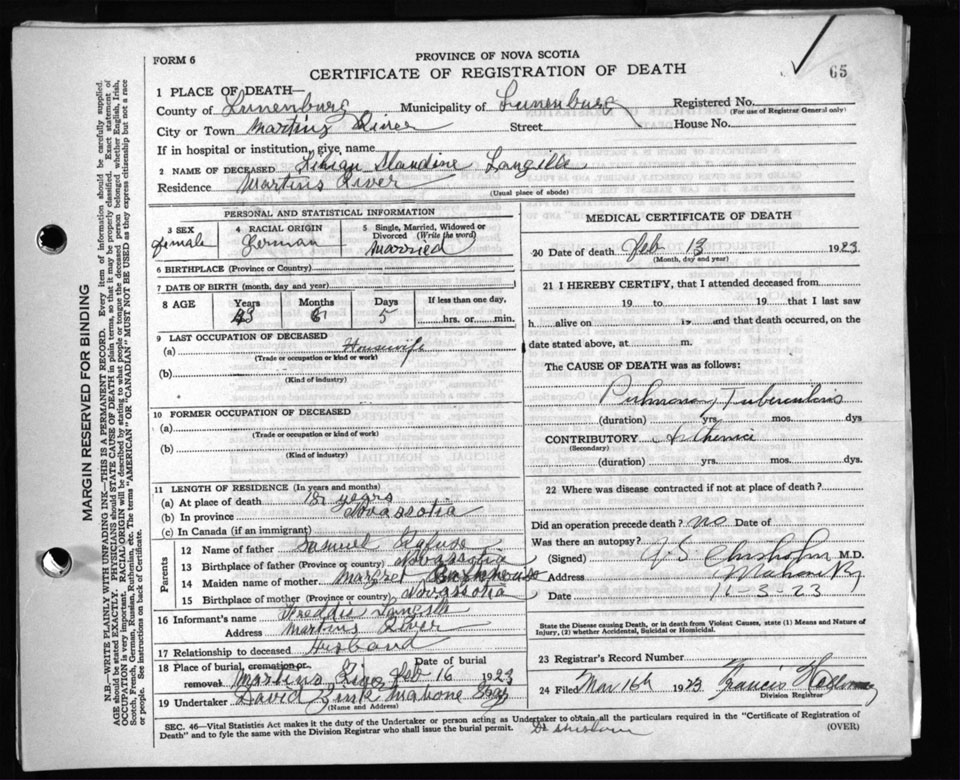 FORM 6
PROVINCE OF NOVA SCOTIA
CERTIFICATE OF REGISTRATION OF DEATH
65
1 PLACE OF DEATH—
County of Lunenburg Municipality of Lunenburg Registered No.
(For use of Registrar General only)
City or Town Martins River Street House No.
If in hospital or institution, give name
2 NAME OF DECEASED Langille
(Usual place of abode)
Residence Martins River
PERSONAL AND STATISTICAL INFORMATION
3 SEX 4 RACIAL ORIGIN 5 Single, Married, Widowed or Divorced (Write the word)
female German Married
6 BIRTHPLACE (Province or Country)
7 DATE OF BIRTH (month, day and year)
8 AGE Years Months Days If less than one day,
5 hrs. or min.
9 LAST OCCUPATION OF DECEASED
(a) Housewife
(Trade or occupation or kind or work)
(b)
(Kind of industry)
10 FORMER OCCUPATION OF DECEASED
(a)
(Trade or occupation or kind of work)
(b)
(Kind of industry)
11 LENGTH OF RESIDENCE (In years and months)
(a) At place of death 18 years
(b) In province Novascotia
(c) In Canada (if an immigrant)
Parents
12 Name of father Samuel
13 Birthplace of father (Province or country) Novascotia
14 Maiden name of mother Margret
15 Birthplace of mother (Province or country) Novascotia
16 Informant's name Freddie
Address Martins River
17 Relationship to deceased Husband
18 Place of burial, cremation or removal Martins River Date of burial Feb 16 1923
19 Undertaker David Zink Mahone Bay
(Name and Address)
MEDICAL CERTIFICATE OF DEATH
20 Date of death Feb 13 1923
(Month, day and year)
21 I HEREBY CERTIFY, that I attended deceased from
19 to 19 that I last saw
h alive on 19 and that death occurred, on the
date stated above, at m.
The CAUSE OF DEATH was as follows:
Pulmonary Tuberculosis
(duration) yrs. mos. dys
CONTRIBUTORY
(Secondary)
(duration) yrs. mos. dys.
22 Where was disease contracted if not at place of death?
Did an operation precede death? no Date of
Was there an autopsy?
(Signed) Chisholm M.D.
Address Mahone Bay
Date 16-3-23
State the Disease causing Death, or in death from Violent Causes, state (1) Means and Nature of Injury, (2) whether Accidental, Suicidal or Homicidal.
23 Registrar's Record Number
24 Filed Mar 16th 1923 Francis
Division Registrar
SEC. 46—Vital Statistics Act makes it the duty of the Undertaker or person acting as Undertaker to obtain all the particulars required in the "Certificate of Registration of
Death" and to fyle the same with the Division Registrar who shall issue the burial permit. (OVER)
MARGIN RESERVED FOR BINDING
N.B.—WRITE PLAINLY WITH UNFADING INK—THIS IS A PERMANENT RECORD. Every item of information should be carefully supplied.
AGE should be stated EXACTLY. PHYSICIANS should STATE CAUSE OF DEATH in plain terms, so that it may be properly classified. Exact statement of
OCCUPATION is very important. RACIAL ORIGIN will be described by stating to what people or tongue the deceased person belonged whether English, Irish,
Scotch, French, German, Russian, Ruthenian, etc. The terms "AMERICAN" OR "CANADIAN" MUST NOT BE USED as they express citizenship but not a race
or people. See instructions on back of Certificate.